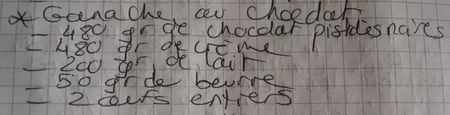 * Ganache au chocolat
- 480 gr de chocolat pistoles noires
- 480 gr de crème
- 200 gr de lait
- 50 gr de beurre
- 2 oeufs entiers